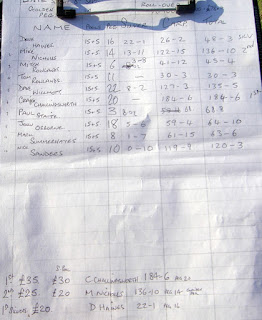 GOLDEN PEG
NAME TOTAL
DAVE HAWES 15+5 16 22- 26-2 48-3
MIKE NICHOLLS 15+5 14 13-11 122-15 136-10 2nd
MITCH ROWLANDS 15+5 -8 41-12 43-4
TOM ROWLANDS 15+5 11 — 30-3 30-3
DAVE WILLMOTT 15+5 22 8-2 127-3 135-5
CRAIG CHALLINSWORTH 15+5 20 — 184-6 184-6 1st
PAUL 15+5 3 68-8
JOHN OSBORNE 15+5 18 5- 59-4 64-10
MARK SUMMERHAYES 15+5 8 1-7 61-15 63-6
NICK SANDERS 15+5 10 0-10 119-9 120-3
1st £35 £30 C. CHALLINSWORTH 184-6 PEG 20
2nd £25 £20 M. NICHOLLS 136-10 PEG 14
1st SILVERS £20 D HAWES 22-1 PEG 16